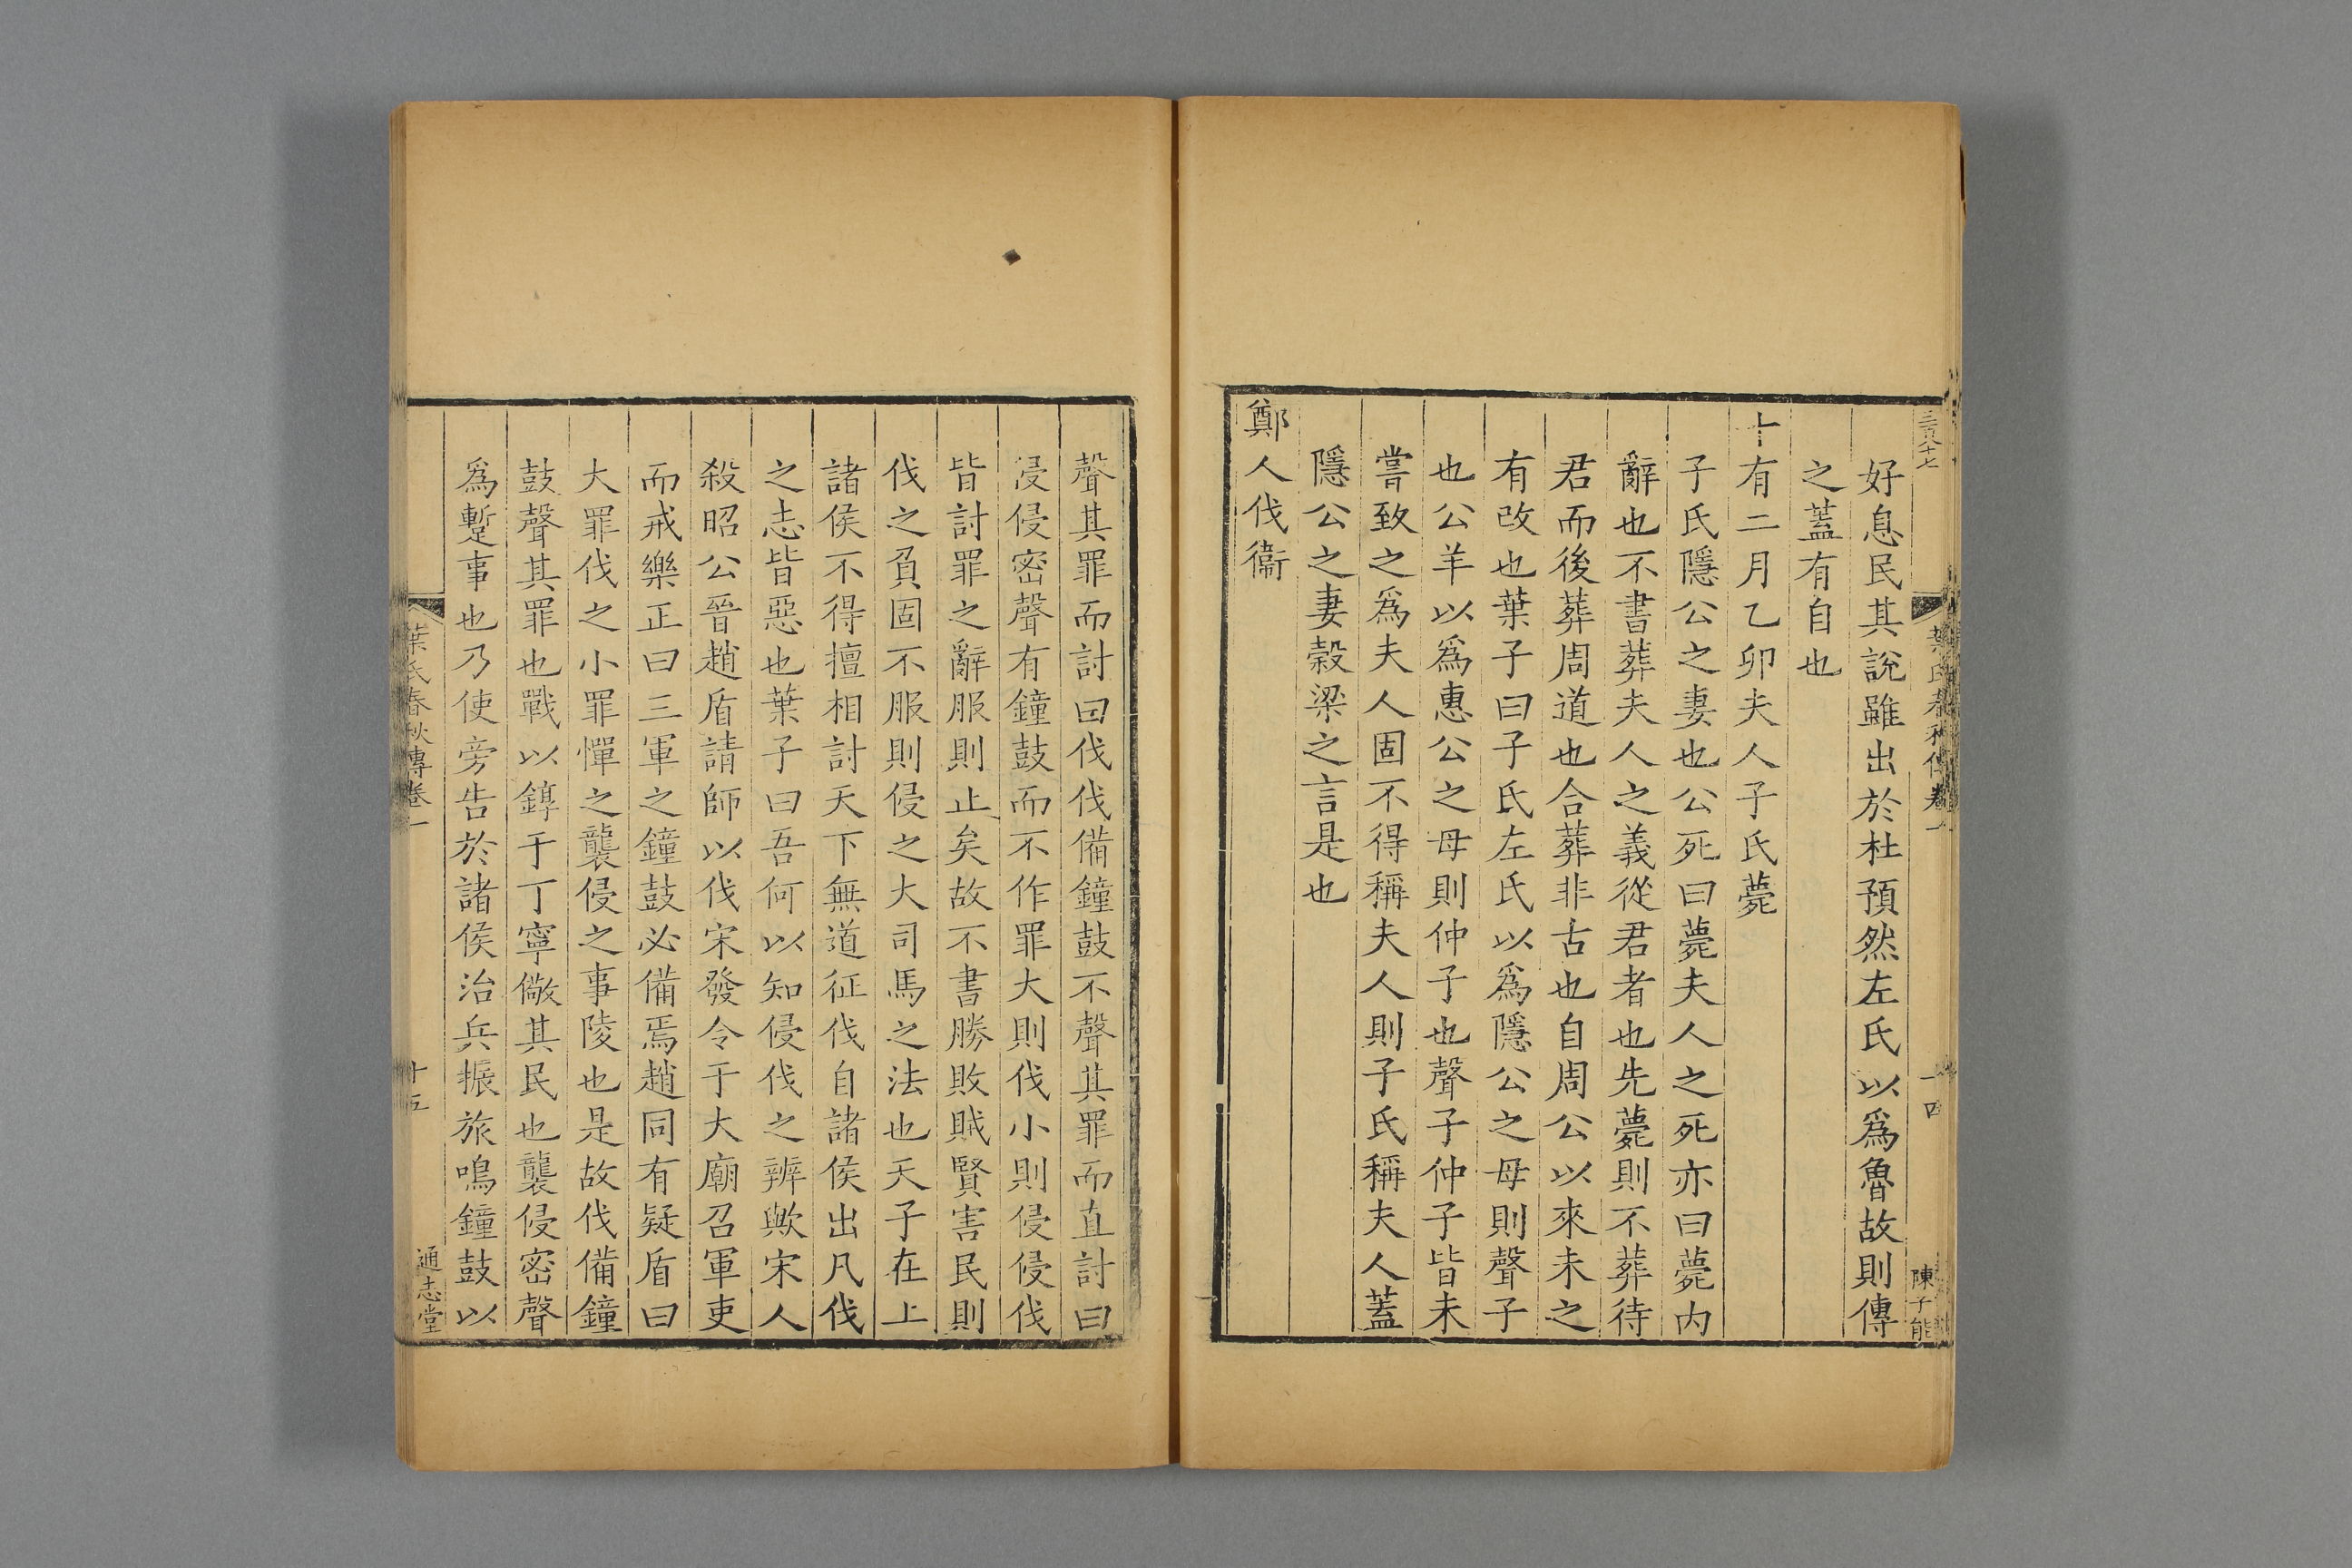 三百八十七
葉氏春秋傳卷一
十四
陳子能
好息民其說雖出於杜預然左氏以爲魯故則傳
之蓋有自也
十有二月乙卯夫人子氏薨
子氏隱公之妻也公死曰薨夫人之死亦曰薨内
辭也不書葬夫人之義從君者也先薨則不葬待
君而後葬周道也合葬非古也自周公以來未之
有改也葉子曰子氏左氏以爲隱公之母則聲子
也公羊以爲惠公之母則仲子也聲子仲子皆未
嘗致之爲夫人固不得稱夫人則子氏稱夫人蓋
隱公之妻穀梁之言是也
鄭人伐衞
聲其罪而討曰伐伐備鐘鼓不聲其罪而直討曰
侵侵密聲有鐘鼓而不作罪大則伐小則侵侵伐
皆討罪之辭服則止矣故不書勝敗賊賢害民則
伐之負固不服則侵之大司馬之法也天子在上
諸侯不得擅相討天下無道征伐自諸侯出凡伐
之志皆惡也葉子曰吾何以知侵伐之辨歟宋人
殺昭公晉趙盾請師以伐宋發令于大廟召軍吏
而戒樂正曰三軍之鐘鼓必備焉趙同有疑盾曰
大罪伐之小罪憚之襲侵之事陵也是故伐備鐘
鼓聲其罪也戰以錞于丁寧儆其民也襲侵密聲
爲蹔事也乃使旁告於諸侯治兵振旅鳴鐘鼓以
葉氏春秋傳卷一
十五
通志堂